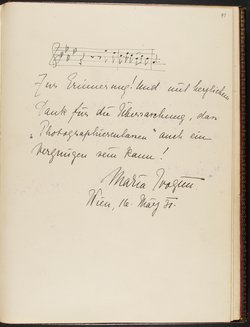 Zur Erinnerung! Und mit herzlichem
Dank für die Überraschung, das
„Photographierenlassen" auch ein
Vergnügen sein kann!
Maria Ivogün
Wien, 16. März 31.